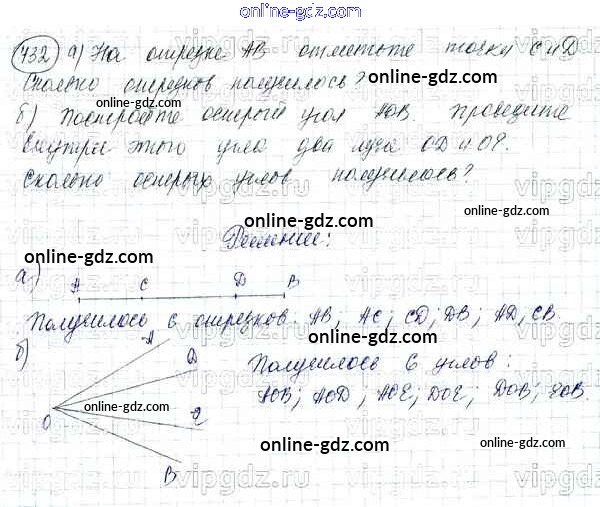 online-gdz.com
732 а) На отрезке АВ отметьте точки С и D
Сколько отрезков получилось?
online-gdz.com
б) Постройте острый угол АОВ. Проведите
online-gdz.com
внутри этого угла два луча ОD и ОЕ.
Сколько острых углов получилось?
vipgdz
online-gdz.com
online-gdz.com
Решение:
online-gdz.com
а)
A C D B
online-gdz.com
Получилось 6 отрезков: АВ, АС; СD; DВ; АD, СВ.
б)
A
D
O
E
B
online-gdz.com
Получилось 6 углов:
АОВ; АОD; АОЕ; DОЕ; DОВ; ЕОВ.
online-gdz.com
online-gdz.com
online-gdz.com
vipgdz